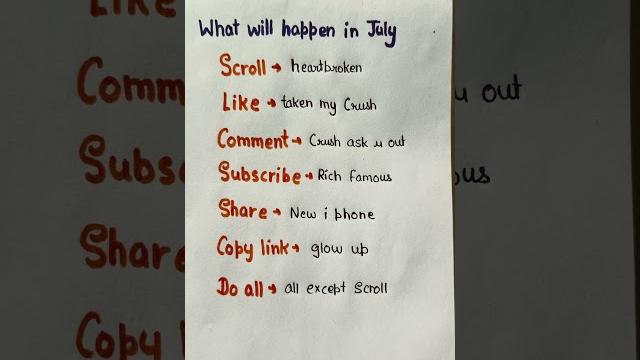 What will happen in July
Scroll → heartbroken
Like → taken my Crush
Comment → Crush ask u out
Subscribe → Rich famous
Share → New i phone
Copy link → glow up
Do all → all except Scroll